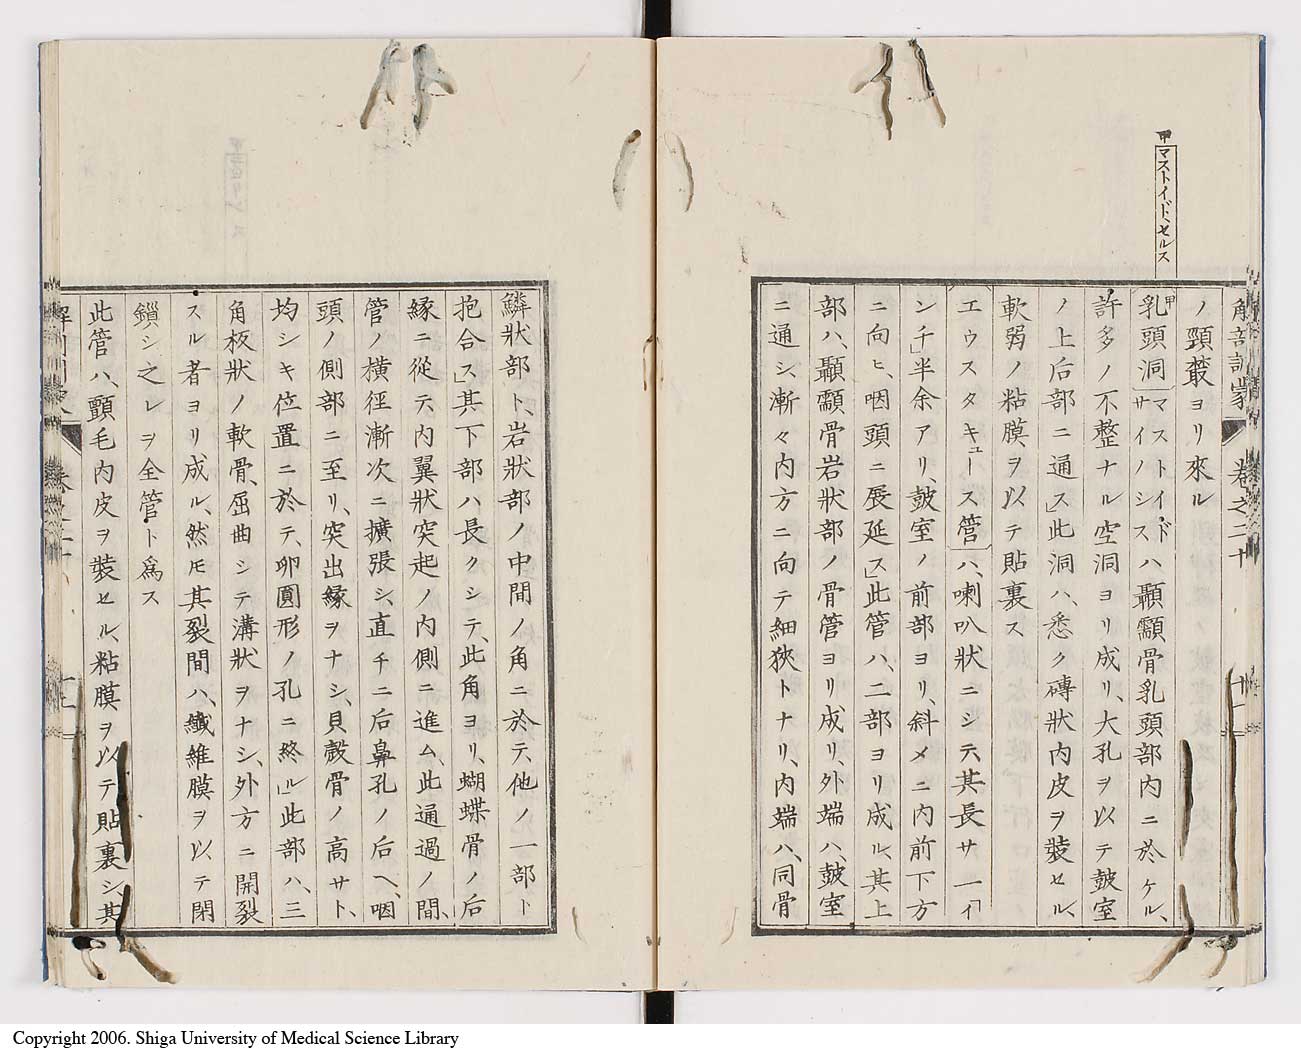 甲
マストイド、セルス
解剖訓蒙
卷之二十
十一
ノ頸叢ヨリ來ル
甲乳頭洞マストイドサイノシスハ顳顬骨乳頭部内ニ於ケル、
許多ノ不整ナル空洞ヨリ成リ、大孔ヲ以テ皷室
ノ上后部ニ通ス」此洞ハ、悉ク磚狀内皮ヲ裝セル、
軟弱ノ粘膜ヲ以テ貼裏ス
エウスタキュース管ハ、喇叭狀ニシテ其長サ一「イ
ンチ」半余アリ、皷室ノ前部ヨリ、斜メニ内前下方
ニ向ヒ、咽頭ニ展延ス」此管ハ、二部ヨリ成ル、其上
部ハ、顳顬骨岩狀部ノ骨管ヨリ成リ、外端ハ、皷室
ニ通シ、漸々内方ニ向テ細狹トナリ、内端ハ、同骨
鱗狀部ト、岩狀部ノ中間ノ角ニ於テ、他ノ一部ト
抱合ス」其下部ハ長クシテ、此角ヨリ、蝴蝶骨ノ后
縁ニ從テ、内翼狀突起ノ内側ニ進ム、此通過ノ間、
管ノ橫徑漸次ニ擴張シ、直チニ后鼻孔ノ后ヘ、咽
頭ノ側部ニ至リ、突出縁ヲナシ、貝殼骨ノ高サト、
均シキ位置ニ於テ、卵圓形ノ孔ニ終ル」此部ハ、三
角板狀ノ軟骨、屈曲シテ溝狀ヲナシ、外方ニ開裂
スル者ヨリ成ル、然モ其裂間ハ、纎維膜ヲ以テ閉
鎖シ之レヲ全管ト爲ス
此管ハ、顫毛内皮ヲ裝セル、粘膜ヲ以テ貼裏シ、其